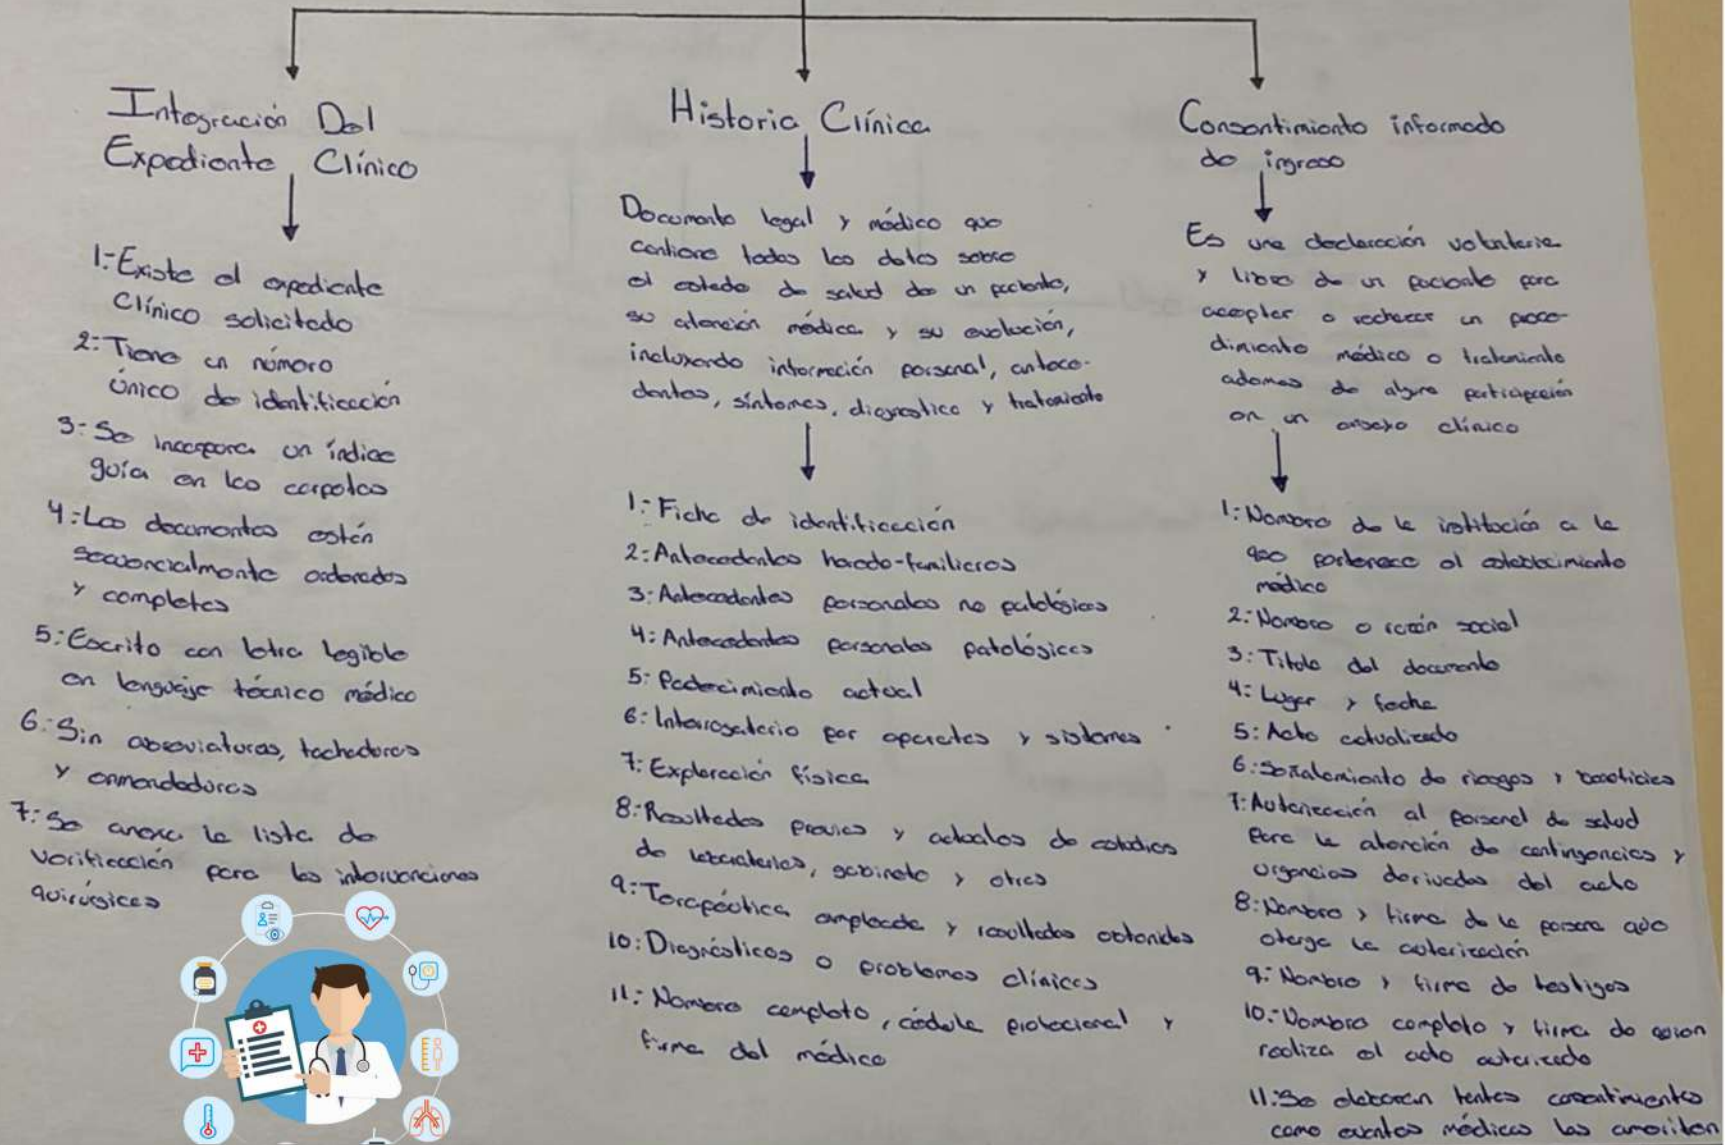 Integración Del
Expediente Clínico
1:-Existe el expediente
Clínico solicitado
2:-Tiene un número
único de identificación
3:-Se incorpora un índice
guía en las carpetas
4:-Los documentos están
secuencialmente ordenados
y completos
5:-Escrito con letra legible
en lenguaje técnico médico
6:-Sin abreviaturas, tachaduras
y enmendaduras
7:-Se anexa la lista de
verificación para las intervenciones
quirúrgicas
Historia Clínica
Documento legal y médico que
contiene todos los datos sobre
el estado de salud de un paciente,
su atención médica y su evolución,
incluyendo información personal, antece-
dentes, síntomas, diagnostico y tratamiento
1:-Ficha de identificación
2:-Antecedentes heredo-familiares
3:-Antecedentes personales no patológicos
4:-Antecedentes personales patológicos
5:-Padecimiento actual
6:-Interrogatorio por aparatos y sistemas
7:-Exploración física
8:-Resultados previos y actuales de estudios
de laboratorios, gabinete y otros
9:-Terapéutica empleada y resultados obtenidos
10:-Diagnósticos o problemas clínicos
11:-Nombre completo, cédula profecional y
firma del médico
Consentimiento informado
de ingreso
Es una declaración voluntaria
y libre de un paciente para
aceptar o rechazar un proce-
dimiento médico o tratamiento
ademas de alguna participación
en un ensayo clínico
1:-Nombre de la institución a la
que pertenece el establecimiento
médico
2:-Nombre o razón social
3:-Titulo del documento
4:-Lugar y fecha
5:-Acto actualizado
6:-Señalamiento de riesgos y beneficios
7:-Autorización al personal de salud
para la atención de contingencias y
urgencias derivadas del acto
8:-Nombre y firma de la persona que
otorga la autorización
9:-Nombre y firma de testigos
10:-Nombre completo y firma de quien
realiza el acto autorizado
11:-Se elaboran tantos consentimientos
como eventos médicos los ameriten